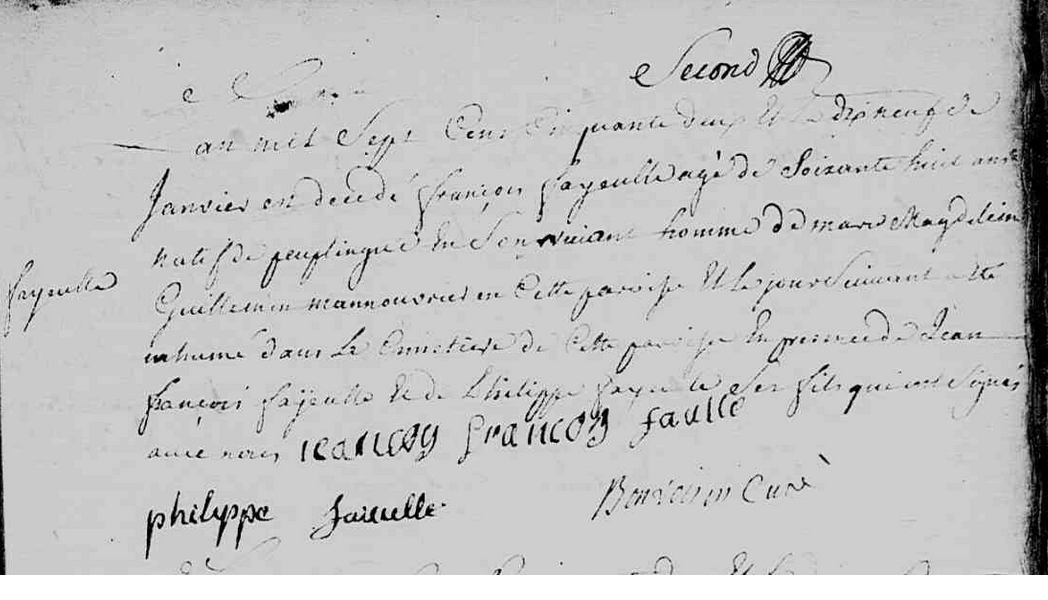 Second
L'an mil Sept Cens Cinquante deux Et Le dix neuf de
Janvier est decedé françois fayeulle agé de Soixante huit ans
natif de peuplingue En Son vivant homme de marie Magdeleine
fayeulle
Guillemin mannouvrier en Cette paroisse Et Le jour Suivant a été
inhumé dans Le Cimetiere de Cette paroisse En presence de Jean
françois fayeulle Et de Philippe fayeulle Ses fils qui ont Signés
avec nous
françoy faulle
philippe faieulle
Curé